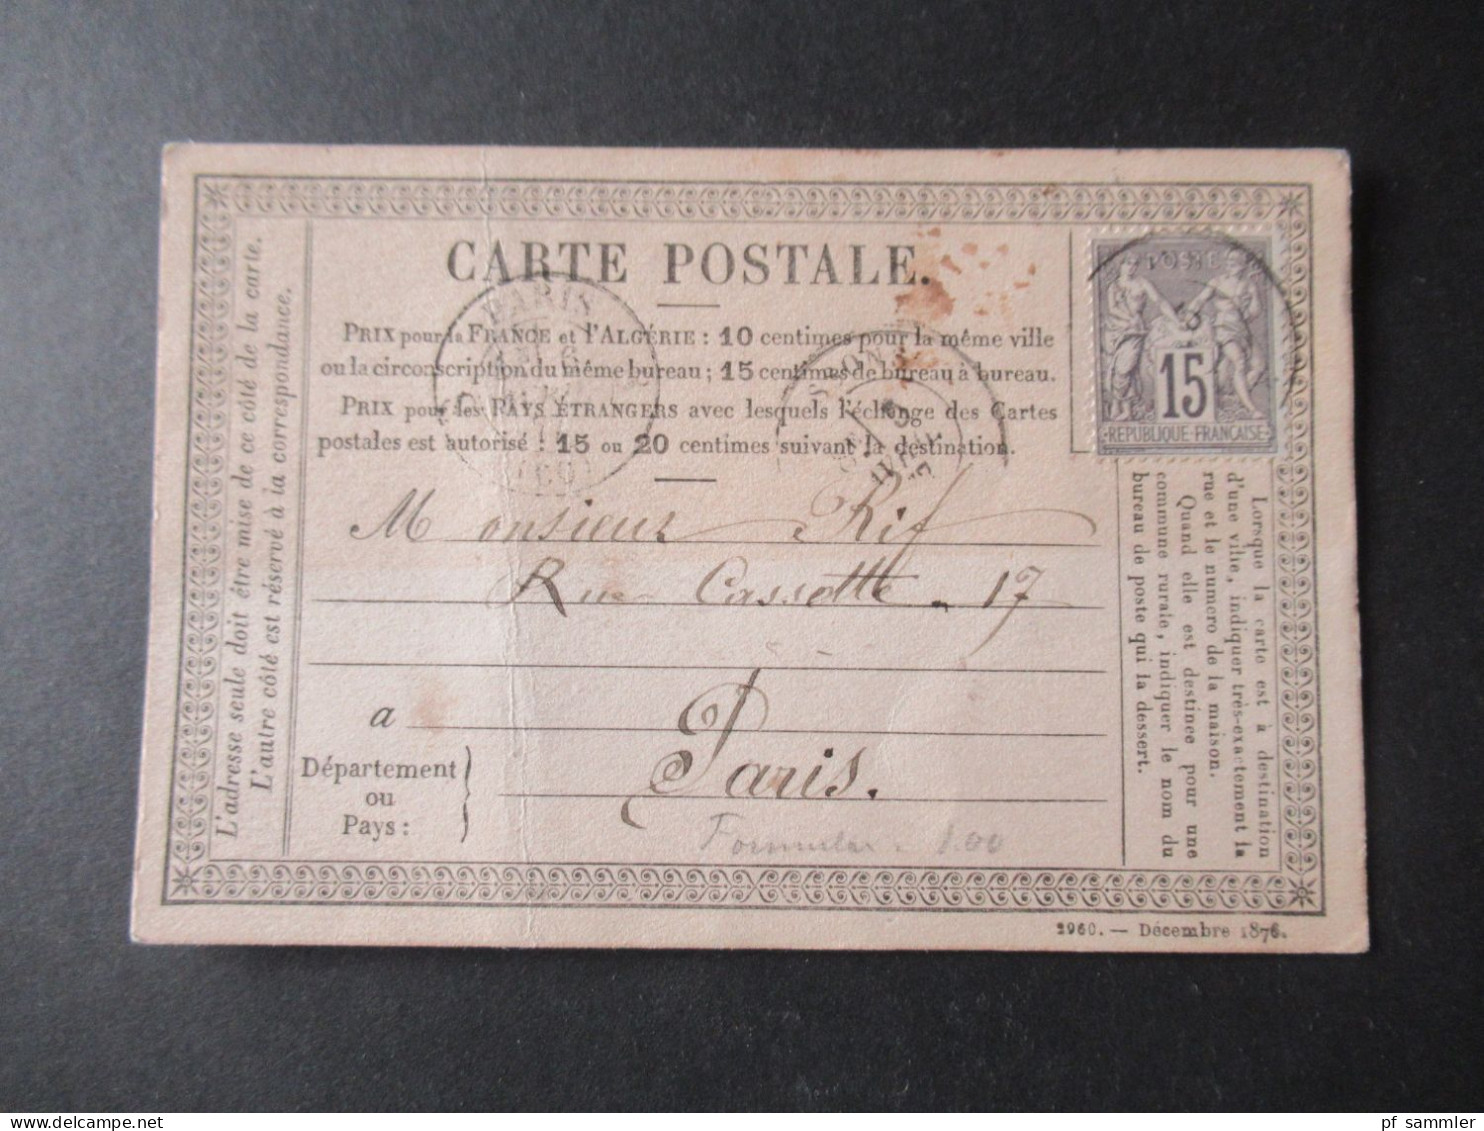 CARTE POSTALE.
PRIX pour la FRANCE et l'ALGÉRIE : 10 centimes pour la même ville
ou la circonscription du même bureau ; 15 centimes de bureau à bureau.
PRIX pour les PAYS ÉTRANGERS avec lesquels l'échange des Cartes
postales est autorisé : 15 ou 20 centimes suivant la destination.
PARIS
POSTE
15
RÉPUBLIQUE FRANÇAISE
L'adresse seule doit être mise de ce côté de la carte.
L'autre côté est réservé à la correspondance.
Monsieur Rif
Rue Cassette . 17
a Paris.
Département
ou
Pays :
Lorsque la carte est à destination
d'une ville, indiquer très-exactement la
rue et le numero de la maison.
Quand elle est destinée pour une
commune rurale, indiquer le nom du
bureau de poste qui la dessert.
2960. — Décembre 1876.
pf_sammler